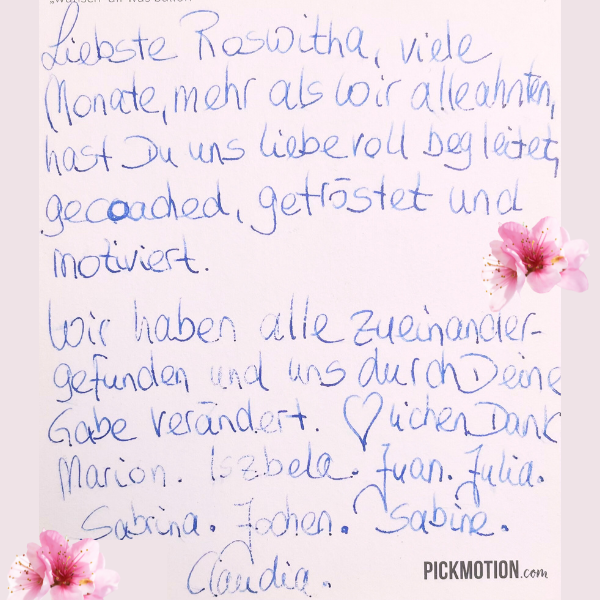 Liebste Roswitha, viele
Monate, mehr als wir alle ahnten,
hast Du uns liebevoll begleitet,
gecoached, getröstet und
motiviert.
Wir haben alle zueinander-
gefunden und uns durch Deine
Gabe verändert. ♡lichen Dank
Marion. Iszbela. Juan. Julia.
Sabrina. Jochen. Sabine.
Claudia.
PICKMOTION.com